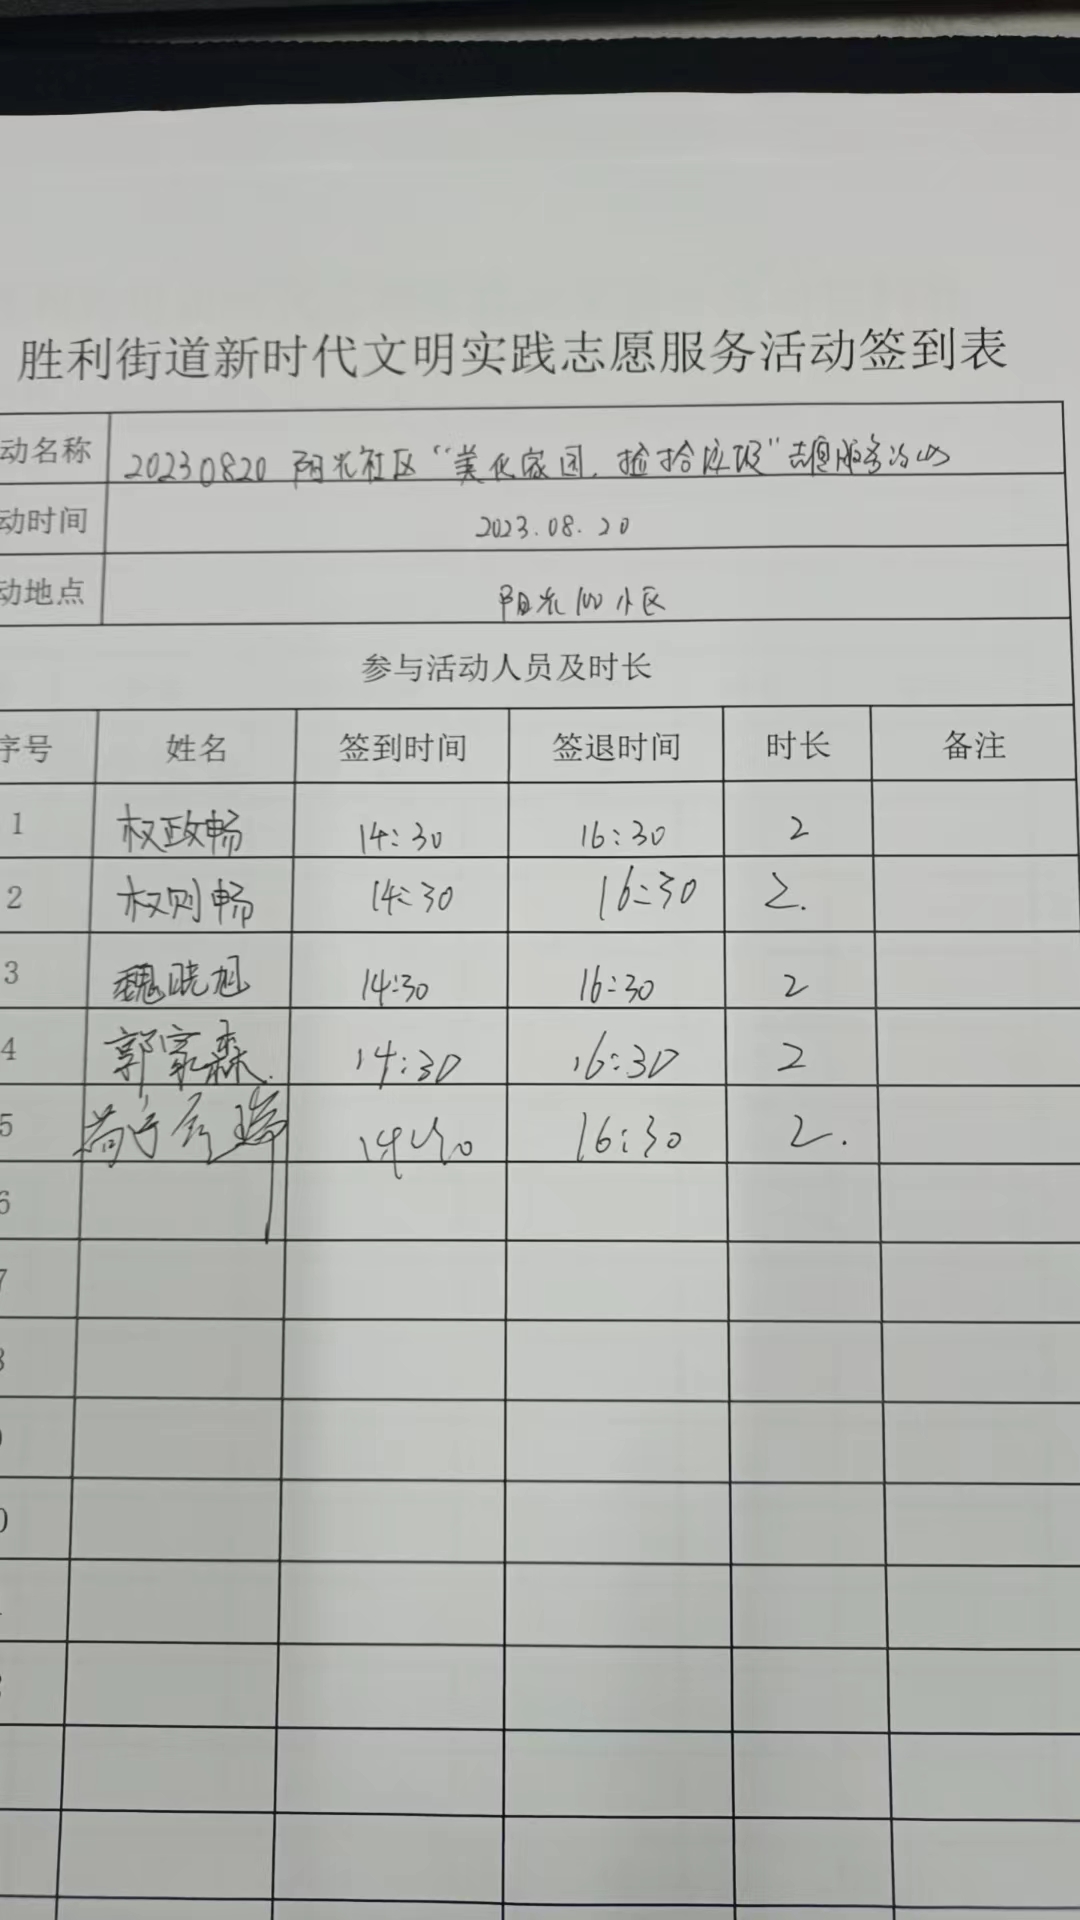 胜利街道新时代文明实践志愿服务活动签到表
动名称 20230820 阳光社区“美化家园、捡拾垃圾”志愿服务活动
动时间 2023.08.20
动地点 阳光100小区
参与活动人员及时长
序号 姓名 签到时间 签退时间 时长 备注
1 权政畅 14:30 16:30 2
2 权则畅 14:30 16:30 2.
3 魏晓旭 14:30 16:30 2
4 郭家森. 14:30 16:30 2
5 14:30 16:30 2.
6
7
8
9
0